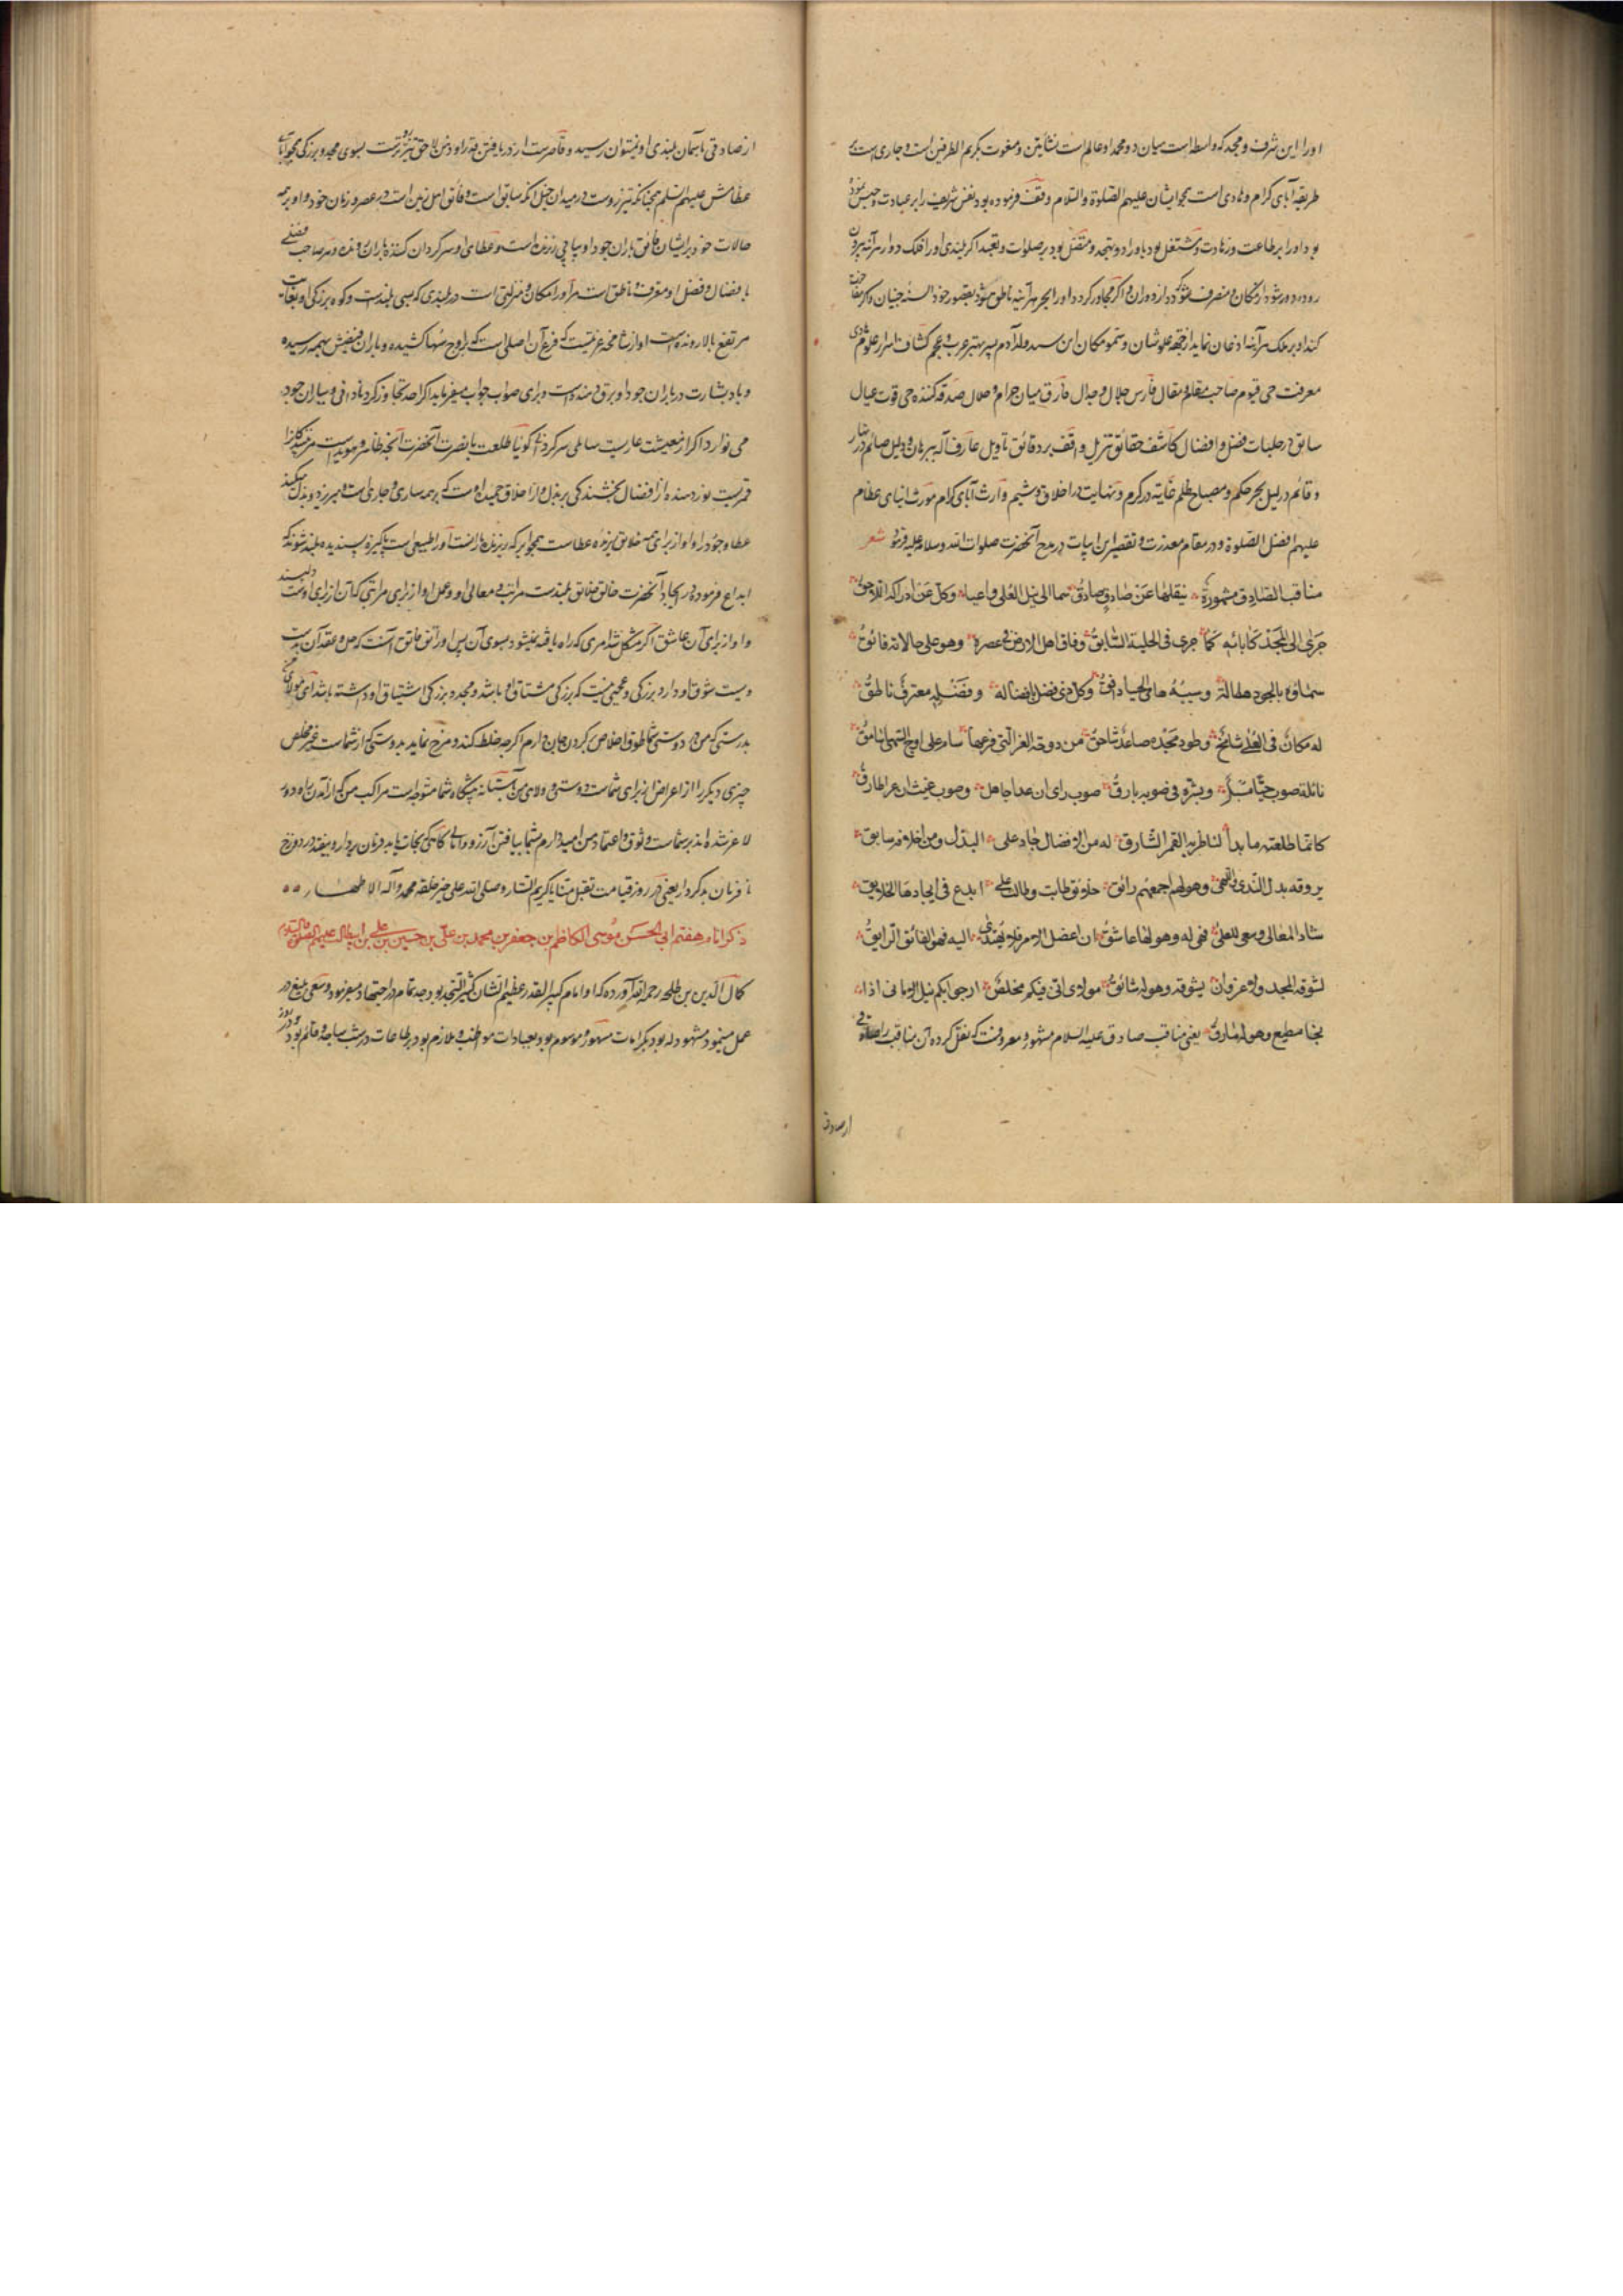 اورا این شرف و مجد که واسطه است میان دو محمد او عالم است نشأتین و منعوت بکریم الطرفین است و جاری است بر
طریقه آبای کرام و نادی است بجوا ایشان علیهم الصلوة والسلام وقف فرموده بود نفس شریف را بر عبادت و حبس نموده
بود اورا بر طاعت و زهادت و مشتغل بود باوراد و تهجد و متنفل بود بر صلوات و تعبد اگر بلندی اورا فلک دوار هرآینه بیرون
رود و دور شود از مکان و منصرف شود که دوران و اگر مجاور کردد اورا بحر هرآینه ناطق میشود بقصور خود السنه جنیان و اگر
کند او بر ملک هرآینه اذعان نماید از جهة علو شان و سمو مکان ابن سید ولد آدم پسر بهتر عرب و عجم کشاف اسرار علوم
معرفت حی قیوم صاحب مقام و مقال فارس جلال و جدال فارق میان حرام و حلال صدقه کننده حی قوت عیال
سابق در حلبات فضل و افضال کاشف حقائق تنزیل واقف بر دقائق تاویل عارف اله ببرهان و دلیل صائم در نهار
و قائم در لیل بحر حکم و مصباح ظلم غایة در کرم و نهایت در اخلاق و شیم وارث آبای کرام مورث ابنای عظام
علیهم افضل الصلوة و در مقام معذرت و تقصیر این ابیات در مدح آنحضرت صلوات الله و سلامه علیه فرمود شعر
مناقب الصادق مشهورة ینقلها عن صادق صادق سما الی نیل العلی وادعا وکل عن ادراکه اللاحق
جری الی المجد کآبائه کما جری فی الحلبة السابق وفاق اهل الارض فی عصره وهو علی حالاته فائق
سماؤه بالجود هطالة وسیبه هامی الحیا دافق وکل ذی فضل بافضاله وفضله معترف ناطق
له مکان فی العلی شامخ وطود مجد صاعد شاهق من دوحة العز التی فرعها سام علی اوج السهی سامق
نائله صوب حیا مسبل وبشره فی صوبه بارق صوب رای ان عدا جاهل وصوب غیث ان عرا طارق
کانما طلعته ما بدأ لناظریه القمر الشارق له من الافضال حاد علی البذل ومن اخلاقه سابق
یروقه بذل الندی واللهی وهو لهم اجمعهم رائق خلائق طابت وطالت علی ابدع فی ایجادها الخالق
شاد المعالی وسعی للعلی فهی له وهو لها عاشق ان اعضل الامر فلا یهتدی الیه فهو الفاتق الراتق
یشوقه المجد ولا غرو ان یشوقه وهو له شائق مولای انی فیکم مخلص ارجو بکم نیل الامانی اذا
نجا مطیع وهوی مارق یعنی مناقب صادق علیه السلام مشهور و معروفست که نقل کرده آن مناقب را صادقی
از صادق
از صادقی باسمان بلندی او نیتوان رسید و قاصرست از دریافتن قدر او ذهن لاحق تیزرو بسوی مجد و بزرگی همچو آبای
عظامش علیهم السلم همچنانکه تیزروست در میدان خیل آنکه سابق است و فائق اهل زمین است در عصر و زمان خود و او بر همه
حالات خود بر ایشان فائق باران جود او پیاپی ریزنده است و عطای او سرکردان کننده باران رونده و هر صاحب فضلی
بافضال و فضل او معترف و ناطق است مر او را مکان و منزلتی است در بلندی که بسی بلندست و کوه بزرگی او بغایت
مرتفع بالا رونده است او از شاخه عزتیست که فرع آن اصلی است که بر اوج سها کشیده و باران فیضش بهمه رسیده
و باد بشارت در باران جود او برق دهنده است و برای صواب جواب میفرماید اگر از حد تجاوز کرد نادانی و بباران جود
می نوازد اگر از معیشت عاریست سائلی سرکردانی کویا طلعت با بصرت آنحضرت آنچه ظاهر و هویداست
قمریست نوردهنده از افضال بخشندکی بر بذل و از اخلاق حمیده اوست که بر همه ساری و جاری است و میریزد و بذل میکند
عطا و جود را و او از برای همه خلائق ریزنده عطاست همچو ابر که ریزنده بارانست او را طبیعی است پاکیزه پسندیده بلند شونده
ابداع فرموده در ایجاد آنحضرت خالق خلائق بلندست مراتب و معالی او و عمل او از برای مراتبی که آن از برای اوست
و او از برای آن عاشق اگر مشکل شد امری که راه یافته نمیشود بسوی آن پس او راتق فاتق آنست که حل و عقد آن بدست
ویست شوق او دارد بزرگی و عجبی نیست که بزرگی مشتاق او باشد و مجد و بزرگی اشتیاق او داشته باشد ای مولای
بدرستی که من در دوستی شما طوق اخلاص در کردن جان دارم اگرچه خلط کند و مزج نماید بدوستی که از شماست غیر مخلص
چیزی دیگر را از اعراض از برای شماست دوستی و ولای من آستانه پیشگاه شما متوجه است مراکب من که از آمدن راه دور
لاغر شده اند بر شماست وثوق و اعتماد من امید دارم بشما بیافتن آرزو و امانی گاهی که نجات یابد فرمان بردار و بیفتد در دوزخ
نافرمان بدکردار یعنی در روز قیامت تقبل منا یا کریم الستار و صلی الله علی خیر خلقه محمد و آله الاطهار
ذکر امام هفتم ابی الحسن موسی الکاظم بن جعفر بن محمد بن علی بن حسین بن علی بن ابیطالب علیهم الصلوة والسلام
کمال الدین بن طلحه رحمه الله آورده که او امام کبیر القدر عظیم الشان کثیر التهجد بود جد تمام در اجتهاد میفرمود و سعی بلیغ در
عمل مینمود مشهود له بود بکرامات مشهور و موسوم بود بعبادات مواظب و ملازم بود بر طاعات در شب ساجد و قائم بود و در روز